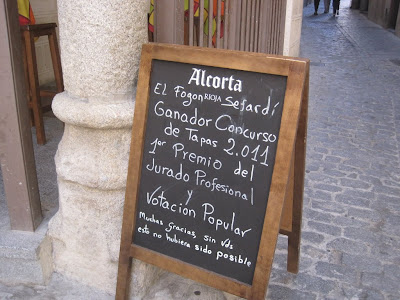 Alcorta
RIOJA
El Fogon Sefardí
Ganador Concurso
de Tapas 2.011
1er Premio del
Jurado Profesional
y
Votacion Popular
Muchas Gracias, Sin Vds
esto no hubiera sido posible